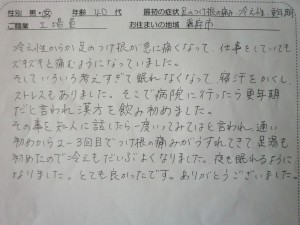 性別 男・女 年齢 40代 最初の症状 足のつけ根の痛み 冷え性 更年期
ご職業 工場員 お住まいの地域
冷え性からか足のつけ根が急に痛くなって、仕事をしていても
ズキズキと痛むようになっていました。
そしていろいろ考えすぎて眠れなくなって 寝汗をかくし、
ストレスもありました。そこで病院に行ったら更年期
だと言われ漢方を飲み初めました。
その事を知人に話したら一度いってみてはと言われ、通い
初めから2〜3回目でつけ根の痛みがうすれてきて足湯も
初めたので冷えもだいぶよくなりました。夜も眠れるように
なりました。とても良かったです。ありがとうございました。